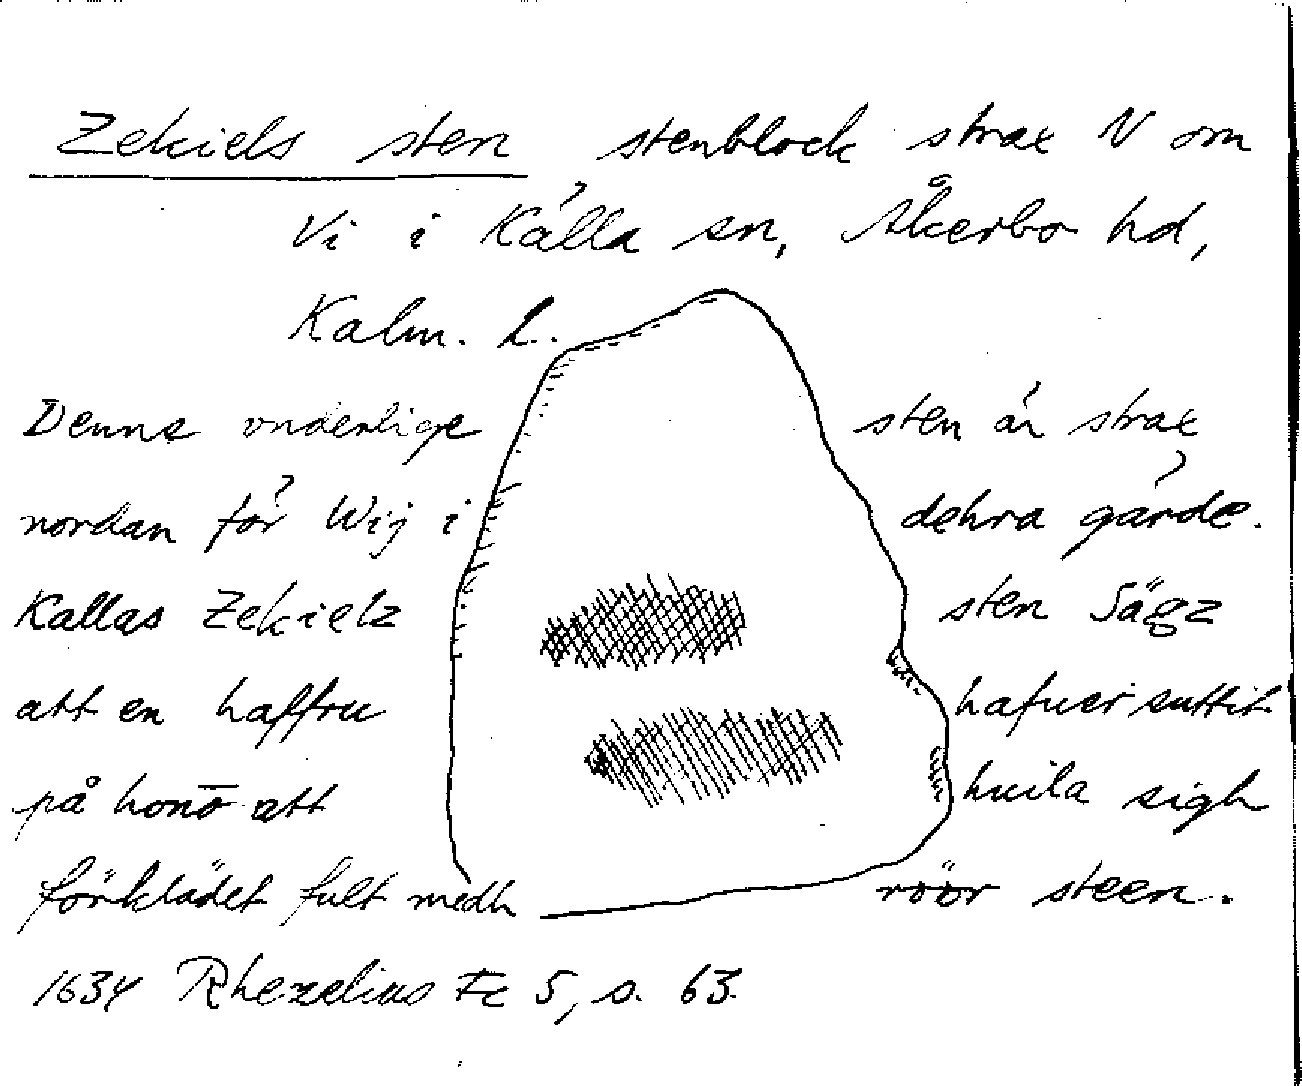 Zekiels sten stenblock strax N om
Vi i Källa sn, Åkerbo hd,
Kalm. L.
Denne vnderlige sten är strax
nordan för Wij i dehra gärde.
Kallas Zekielz sten Sägz
att en haffru hafuer suttit
på honō att huila sigh
förklädet fult medh röör steen.
1634 Rhezelius Fc 5, s. 63.